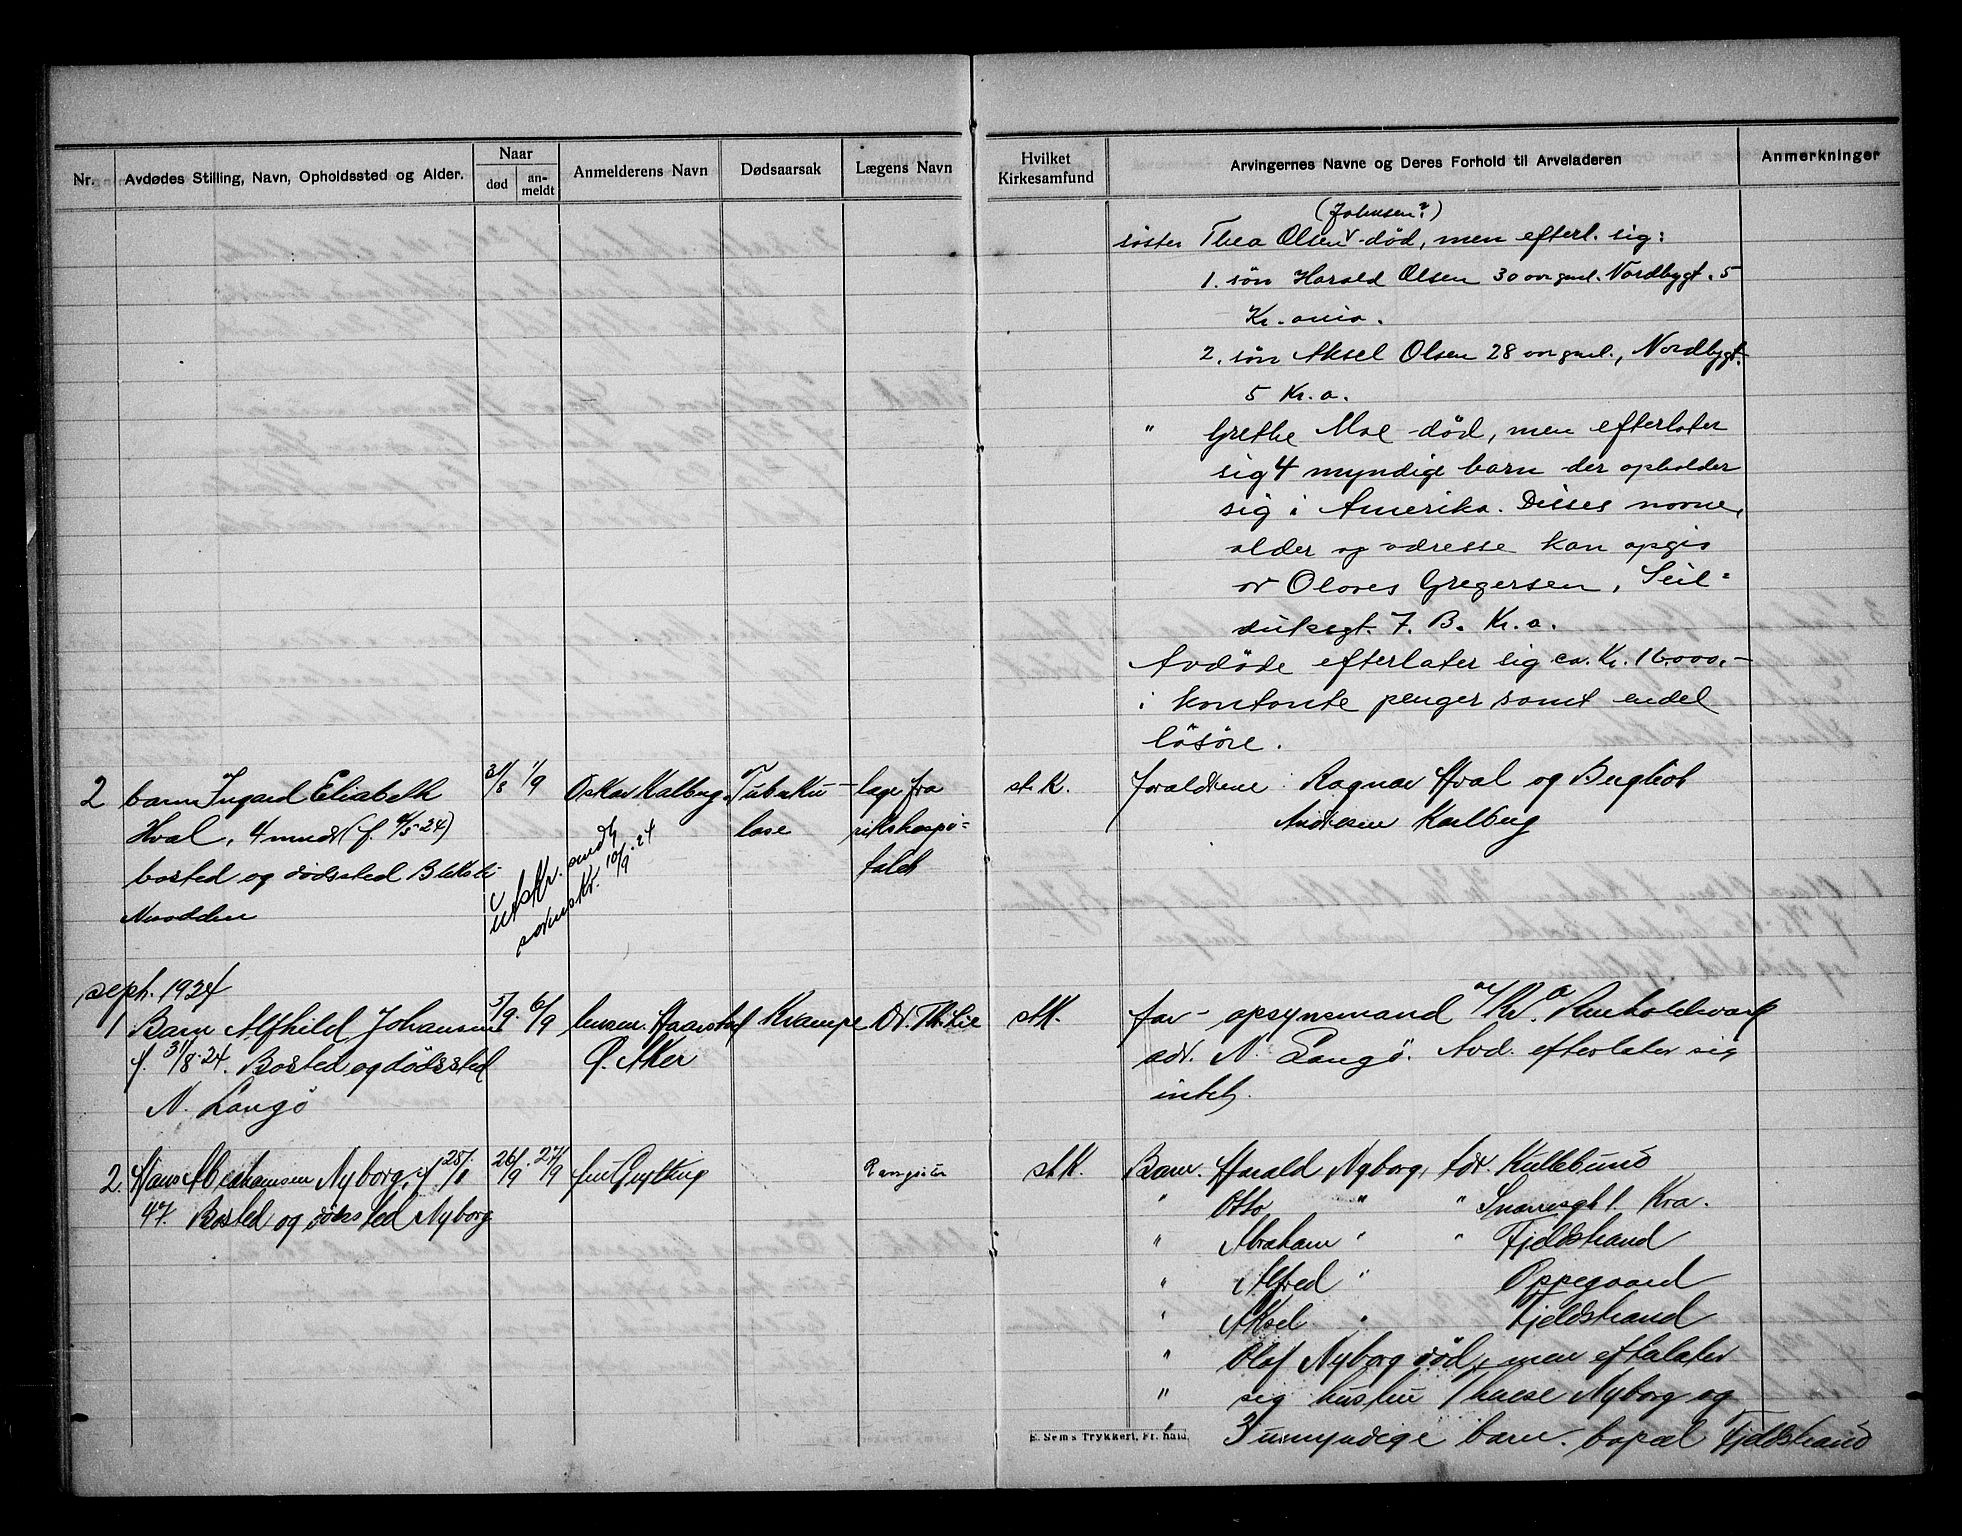 Nr.
Avdødes Stilling, Navn, Opholdssted og Alder.
Naar
død
an-
meldt
Anmelderens Navn
Dødsaarsak
Lægens Navn
Hvilket
Kirkesamfund
Arvingernes Navne og Deres Forhold til Arveladeren
Anmerkninger
(Johnsen?)
søster Thea Olsen død, men efterl. sig:
1. søn Harald Olsen 30 aar gml. Nordbygt. 5
Kr.ania.
2. søn Aksel Olsen 28 aar gml., Nordbygt.
5 Kr.a.
" Grethe Moe død, men efterlater
sig 4 myndige barn der opholder
sig i Amerika. Disses navne,
alder og adresse kan opgis
av Olaves Gregersen, Seil=
duksgt. 7. B. Kr.a.
Avdøde efterlater sig ca. Kr. 16,000.-
i kontante penger samt endel
løsøre.
2 barn Ingard Elisabeth 31/8 1/9 Oskar Kalberg. Tuberku- læge fra st.K. forældrene Ragnar Hval og Bergliot
Hval, 4 mndr (f. 4/5-24) lose rikshospi= Andresen Kalberg
bosted og dødssted Bleksli talet
Nesodden
utskr. sendt
sorenskr. 10/9-24
sept. 1924
1 Barn Alfhild Johansen 5/9 6/9 Haarstad Krampe Dr. Th. Lie st.K. far - opsynsmand
f. 31/8-24. Bosted og dødssted Ø. Aker adr. N. Langø. Avd. efterlater sig
N. Langø intet.
2. Hans Abrahamsen Nyborg, f. 26/9 27/9 st.K. Barn. Harald Nyborg, adr. Kullebund
47. Bosted og dødssted Nyborg " Otto " " Snarresgt 1. Kra.
" Abraham " " Fjeldstrand
" Alfred " Oppegaard
" Aksel " Fjeldstrand
" Olaf Nyborg død, men efterlater
" sig hustru Nyborg og
" 3 umyndige barn. bopæl Fjeldstrand
E. Sem's Trykkeri, Fr.hald.